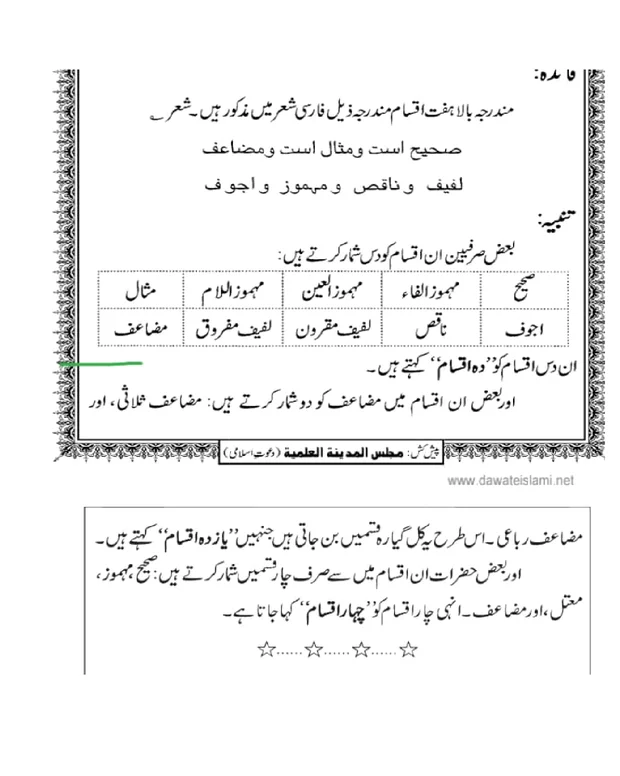 فائدہ:
مندرجہ بالا ہفت اقسام مندرجہ ذیل فارسی شعر میں مذکور ہیں۔ شعر ؎
صحیح است ومثال است ومضاعف
لفیف وناقص ومہموز واجوف
تنبیہ:
بعض صرفیین ان اقسام کو دس شمار کرتے ہیں:
صحیح مہموز الفاء مہموز العین مہموز اللام مثال
اجوف ناقص لفیف مقرون لفیف مفروق مضاعف
ان دس اقسام کو ’’دہ اقسام‘‘ کہتے ہیں۔
اور بعض ان اقسام میں مضاعف کو دو شمار کرتے ہیں: مضاعف ثلاثی، اور
پیش کش: مجلس المدینۃ العلمیۃ (دعوتِ اسلامی)
www.dawateislami.net
مضاعف رباعی۔ اس طرح یہ کل گیارہ قسمیں بن جاتی ہیں جنہیں ’’یازدہ اقسام‘‘ کہتے ہیں۔
اور بعض حضرات ان اقسام میں سے صرف چار قسمیں شمار کرتے ہیں: صحیح، مہموز،
معتل، اور مضاعف۔ انہی چار اقسام کو ’’چہار اقسام‘‘ کہا جاتا ہے۔
☆......☆......☆......☆